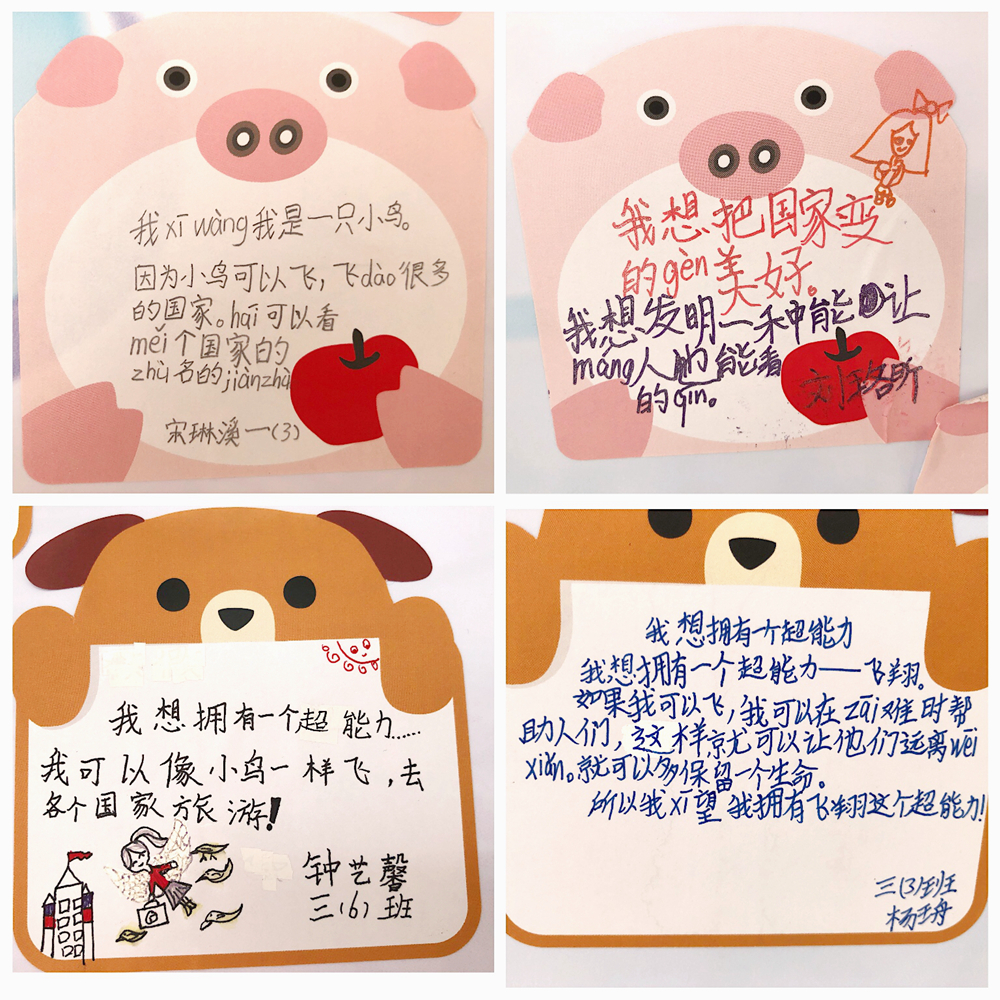 我xī wàng我是一只小鸟。
因为小鸟可以飞，飞dào很多
的国家。hái可以看
měi个国家的
zhù名的jiànzhù
宋琳溪一(3)
我想把国家变
的gèn美好。
我想发明一种能让
máng人能看
的gīn。
我想拥有一个超能力……
我可以像小鸟一样飞，去
各个国家旅游！
钟艺馨
三(6)班
我想拥有一个超能力
我想拥有一个超能力——飞翔。
如果我可以飞，我可以在zāi难时帮
助人们，这样就可以让他们远离wēi
xiǎn。就可以多保留一个生命。
所以我xī望我拥有飞翔这个超能力！
三(3)班